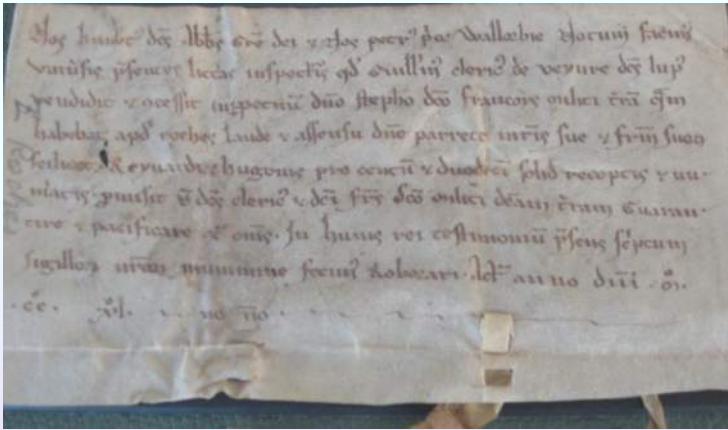 Nos humbt᷒ dc̄s Abbas Gr̄e dei & Nos petr᷒ p̄or Wallorbie Notum facim᷒
vniu͛sis p̄sentes litt͛as inspectur᷒ qd̄ Guill̄m᷒ cleric᷒ de veyure dc̄s lup᷒
vendidit & ↄcessit inp͛petuū dn̄o stepho dc̄o francois militi t͛rā q̄m
habebat apd᷒ roches laude & assensu dn̄e parrete mr̄is sue & fr̄m suoꝝ
scilicet Reynardi & hugonis pro centū & duodeci᷒ solid᷒ receptis & nu-
m͛atis. p̄misit ē dc̄s cleric᷒ & dc̄i fr̄s dc̄o militi dc̄am t͛ram Guaran-
tire & pacificare ꝯt͛ om̄s. In huius rei testimoniū p̄sens sc͛ptum
sigilloꝝ nr̄oꝝ munimine fecim᷒ Roborari. Act᷒ anno dn̄i .m̊.
.cc̊. xl̊. no no.